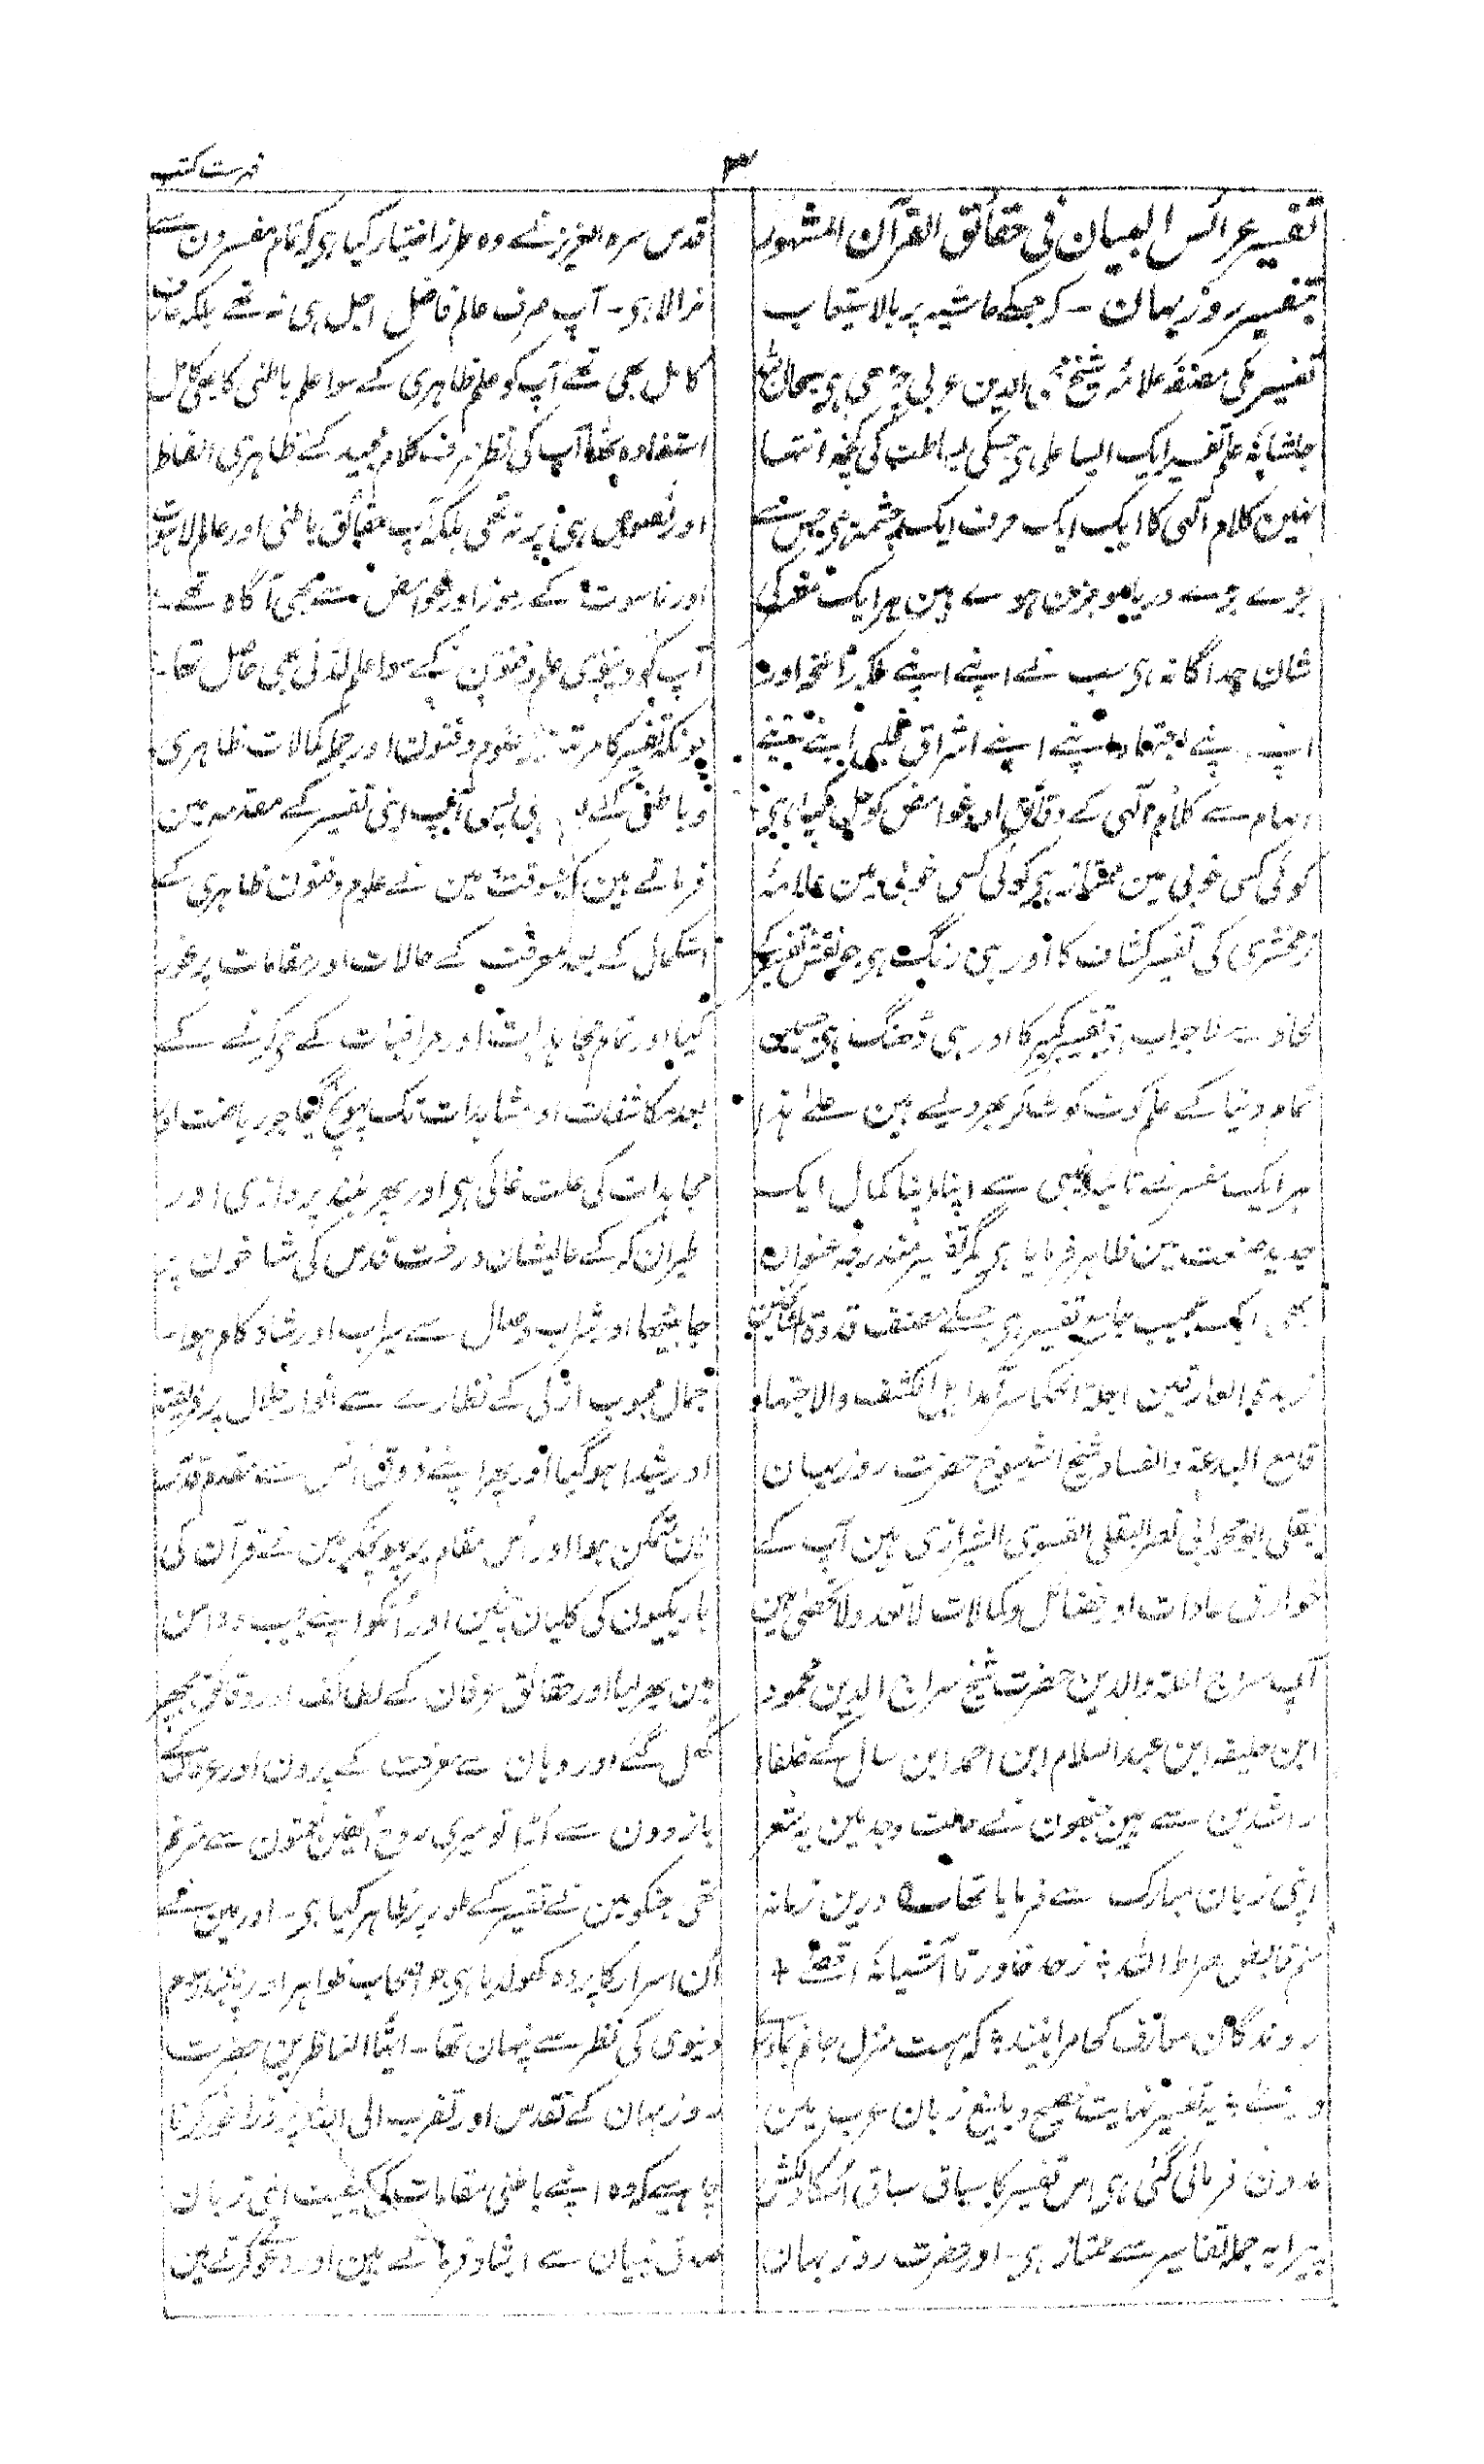 فہرست کتب
۳
تفسیر عرائس البیان فی حقائق القرآن المشہور
بتفسیر روز بہان - کہ جسکے حاشیہ پر بالاستیعاب
تفسیر علامہ شیخ محی الدین عربی چڑھی ہی سبحان اللہ
جلشانہ علم تفسیر ایک ایسا علم ہی جسکی بساطت کی کچھ انتہا
نہین کلام الٰہی کا ایک ایک حرف ایک چشمہ ہی جس سے
بڑے بڑے دریا موجزن ہوے ہین ہر ایک مفسر کی
شان جداگانہ ہی سب نے اپنے اپنے
اپنے اپنے اجتہاد اپنے اپنے اشراق قلبی اپنے
الہام سے کلام الٰہی کے دقائق اور غوامض کو حل کیا ہی
کوئی کسی خوبی مین ہی کوئی کسی خوبی مین علامہ
زمخشری کی تفسیر کشاف کا اور ہی رنگ ہی جو
لاجواب ہی تفسیر کبیر کا اور ہی ڈھنگ ہی جسمین
تمام دنیا کے علم کوٹ کوٹ کر بھر دیے ہین علے ہذا
ہر ایک مفسر نے سے اپنا اپنا کمال ایک
جدید صنعت مین ظاہر فرمایا ہی مگر تفسیر
بھی ایک عجیب جامع تفسیر ہی جسکے مصنف قدوۃ
زبدۃ العارفین الکشف والاجتہاد
قامع البدعۃ والفساد شیخ الشیوخ حضرت روز بہان
بقلی ابو محمد ابی نصر البقلی الفسوی الشیرازی ہین آپ کے
خوارق عادات اور فضائل و کمالات لا تعد ولا تحصٰی ہین
آپ سراج الملۃ والدین حضرت شیخ سراج الدین محمود
ابن خلیفہ ابن عبد السلام ابن احمد ابن سال کے خلفا
راشدین سے ہین جنہون نے حالت وجد مین یہ شعر
اپنی زبان مبارک سے فرمایا تھا ؎ درین زمانہ
منم قابض صراط اللہ ؛ زحد خاور تا آستانۂ اقصٰے +
روندگان معارف کجا مرا بینند ؛ کہ ہست منزل جانم
یہ تفسیر نہایت فصیح و بلیغ زبان عرب مین
مدون فرمائی گئی ہی اس تفسیر کا سیاق سباق
پیرایہ جملہ تفاسیر سے ممتاز ہی - اور حضرت روز بہان
قدس سرہ العزیز نے وہ طرز اختیار کیا ہی کہ تمام مفسرون سے
نرالا ہی - آپ صرف عالم فاضل اجل ہی نہ تھے بلکہ عارف
کامل بھی تھے آپ کو علم ظاہری کے سوا علم باطنی کا بھی کامل
استفادہ تھا آپ کی نظر صرف کلام مجید کے ظاہری الفاظ
اور نصوص ہی پر نہ تھی بلکہ آپ حقائق باطنی اور عالم لاہوت
اور ناسوت کے رموز اور غوامض سے بھی آگاہ تھے -
آپ کو دنیوی علم و فنون کے سوا علم لدنی بھی حاصل تھا -
چونکہ تفسیر کا مرتبہ علوم و فنون اور جملہ کمالات ظاہری
و باطنی پس آپ اپنی تفسیر کے مقدمہ مین
فرماتے ہین کہ جسوقت مین نے علوم و فنون ظاہری کے
استکمال کے بعد معرفت کے حالات اور مقامات پر عبور
کیا اور تمام مجاہدات اور مراقبات کے طے کرنے کے
بعد مکاشفات اور مشاہدات تک پہونچ گیا جو ریاضت اور
مجاہدات کی علت غائی ہی اور پھر بلند پروازی اور
طیران کر کے عالیشان درخت قدس کی شاخون پر
جا بیٹھا اور شراب وصال سے سیراب اور شاد کام ہوا -
جمال محبوب ازلی کے نظارے سے انوار جلال پر فریفتہ
اور شیدا ہو گیا اور پھر اپنے ذوق انس سے
مین متمکن ہوا اور اُس مقام پر پہونچکر مین نے قرآن کی
باریکیون کی کلیان چنین اور اُنکو اپنے جیب و دامن
مین بھر لیا اور حقائق عرفان کے لطائف اور دقائق مجھپر
کھل گئے اور وہان سے معرفت کے پرون اور
بازوون سے اُڑا تو میری روح انھین
تھی جنکو مین نے تفسیر کے طور پر ظاہر کیا ہی - اور مین نے
اُن اسرار کا پردہ کھولدیا ہی جو اصحاب ظواہر اور
دنیوی کی نظر سے پنہان تھا - ایہا الناظرین حضرت
روز بہان کے تقدس اور تقرب الی اللہ پر ذرا غور کرنا
چاہیے کہ وہ اپنے باطنی مقامات کی کیفیت اپنی زبان
صدق بیان سے ارشاد فرماتے ہین اور دعویٰ کرتے ہین